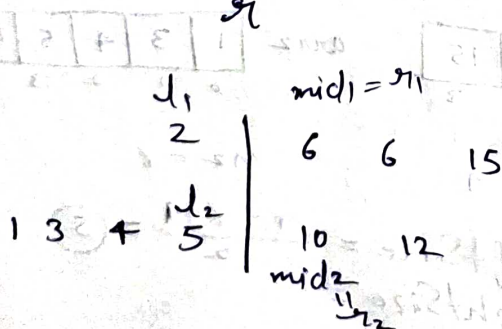 r
l1 mid1 = r1
2 | 6 6 15
l2
1 3 4 5 | 10 12
mid2
=
r2